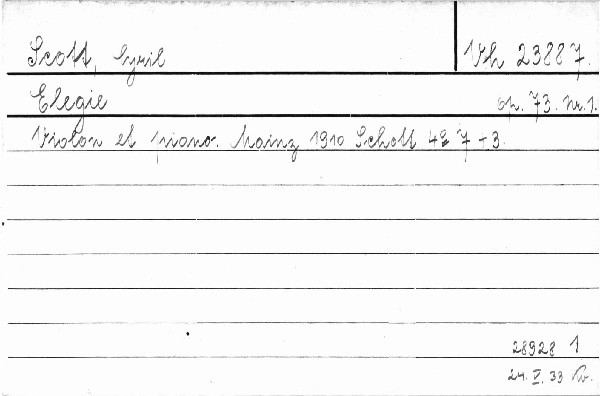 Scott, Cyril Vh 23887.
Elegie op. 73. Nr. 1.
Violon et piano. Mainz 1910 Schott 4º 7+3.
28928 1
24. V. 33